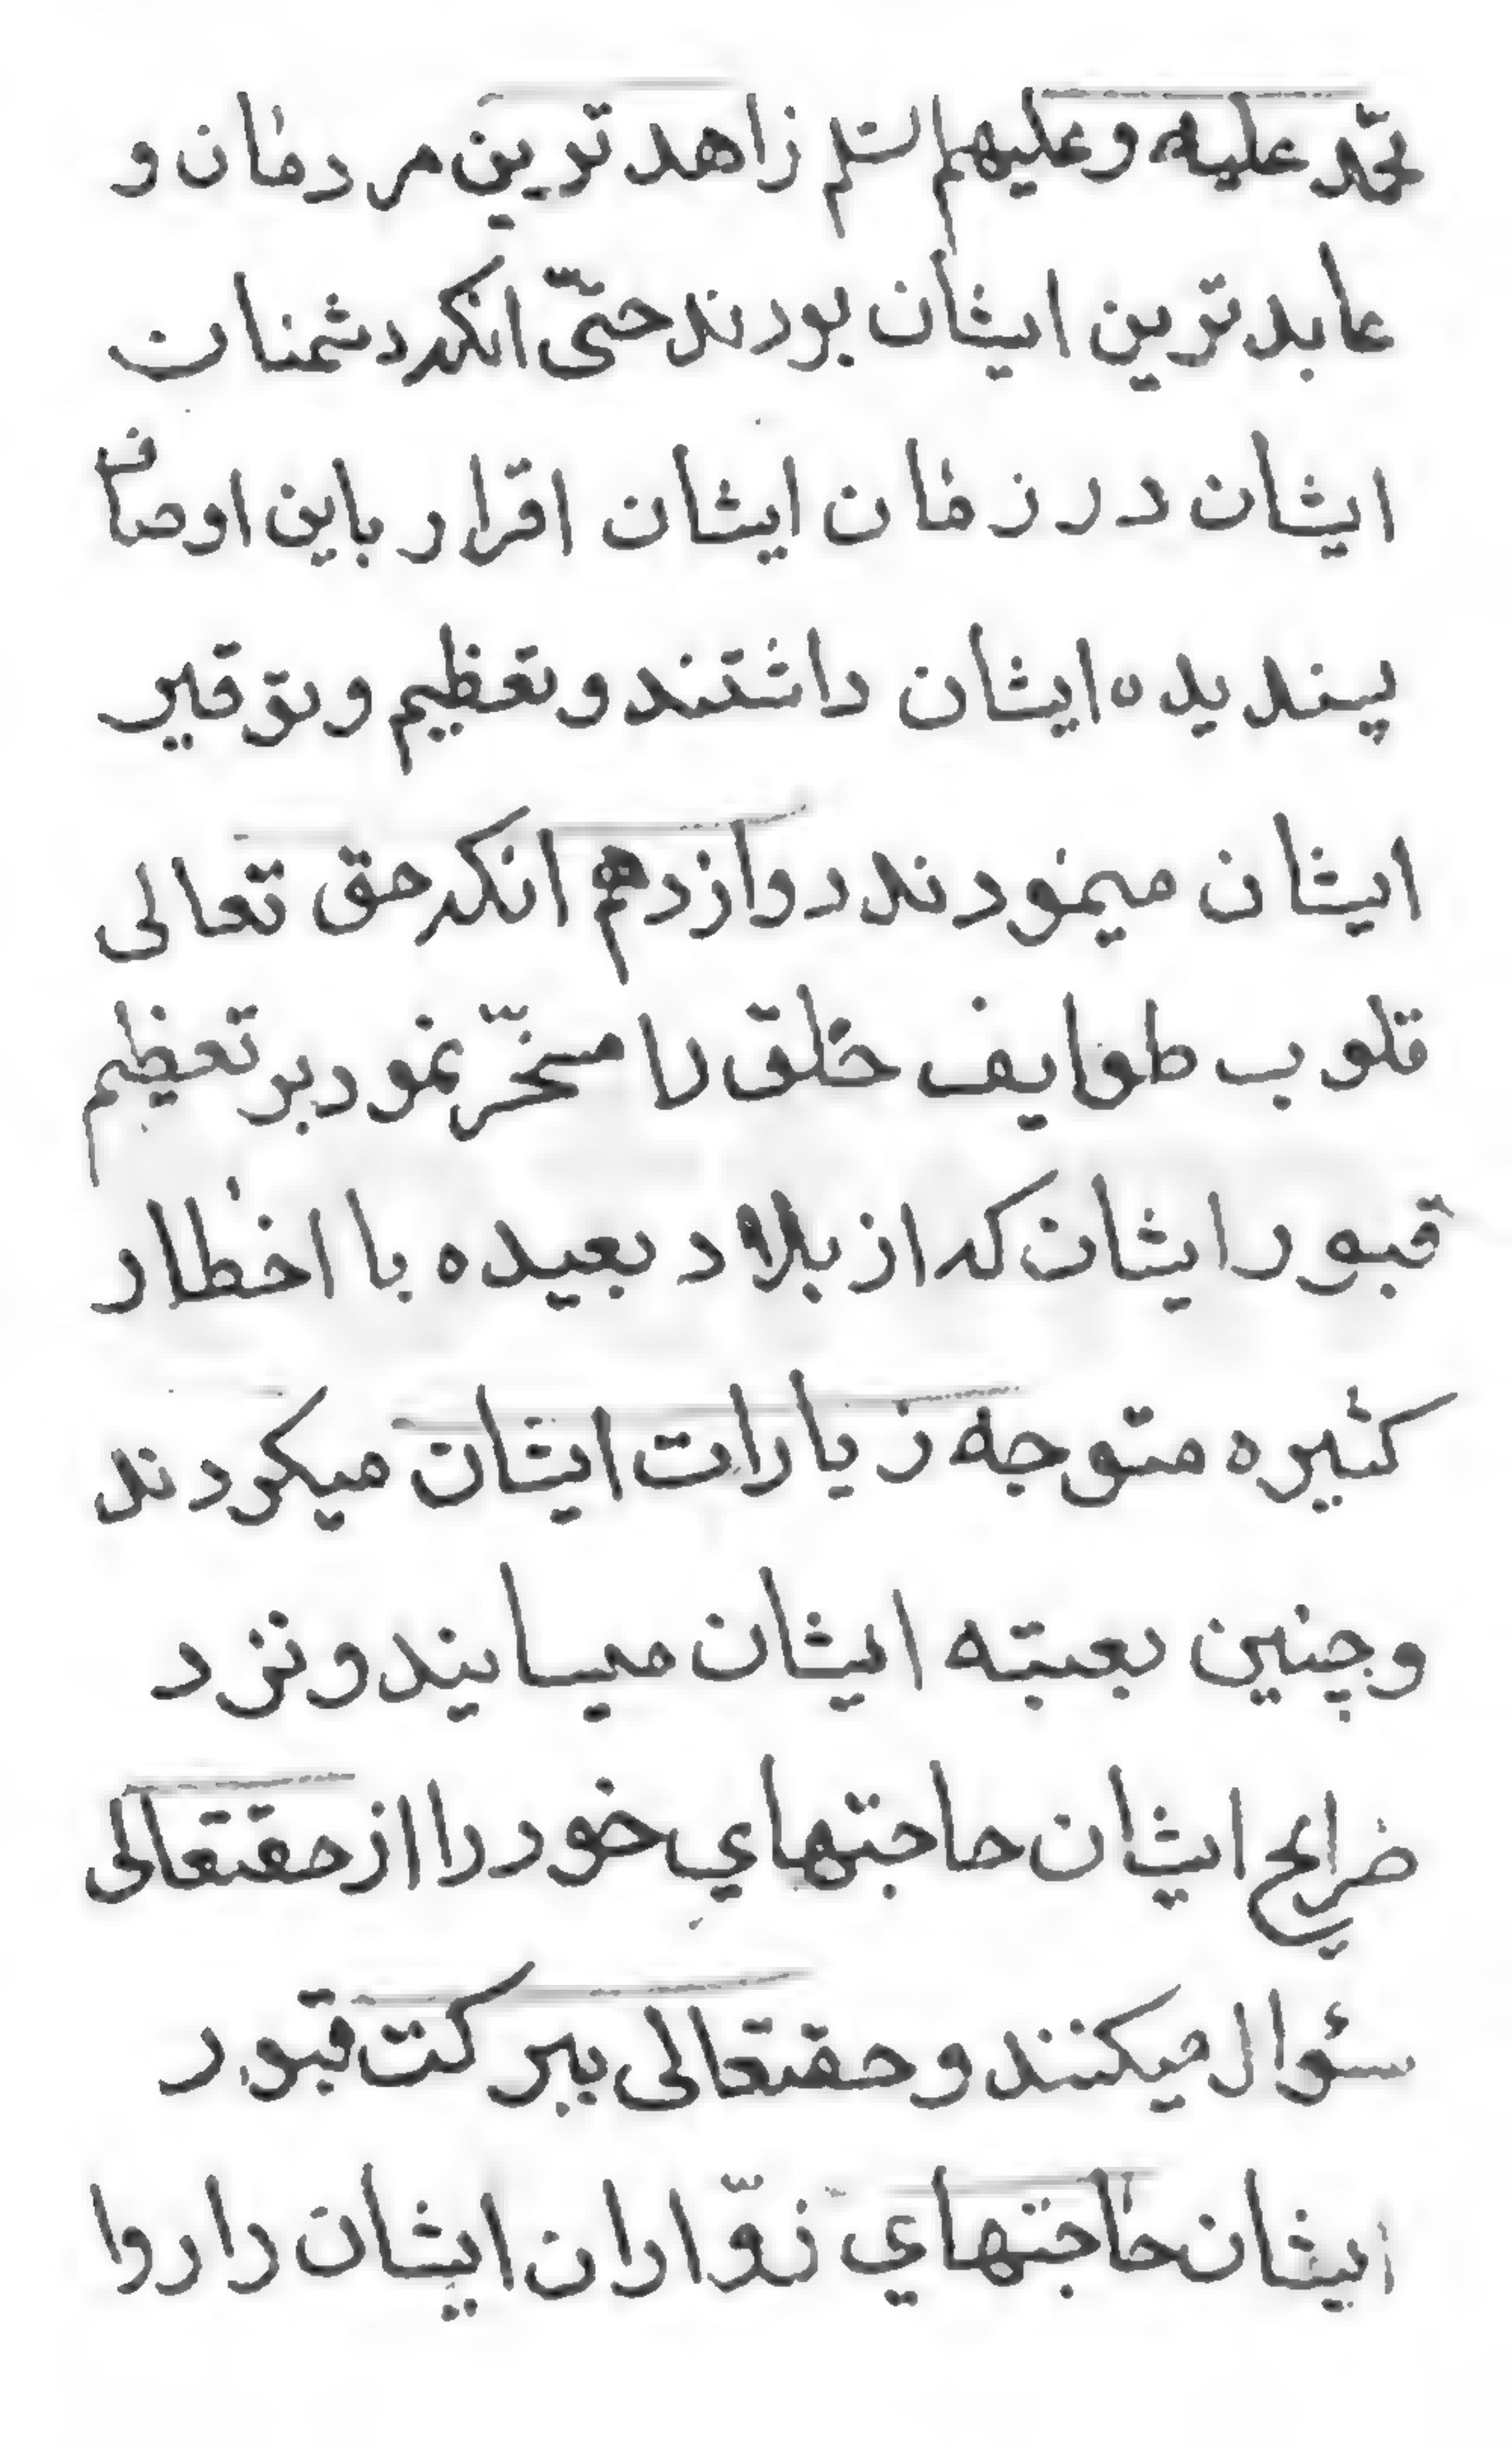 محمّد علیه وعلیهم السّلم زاهد ترین مردمان و
عابد ترین ایشان بودند حتّی انکه دشمنان
ایشان در زمان ایشان اقرار باین اوصاف
پسندیده ایشان داشتند و تعظیم و توقیر
ایشان مینمودند دوازدهم انکه حق تعالی
قلوب طوایف خلق را مسخّر نمود بر تعظیم
قبور ایشان که از بلاد بعیده با اخطار
کثیره متوجه زیارات ایشان میکردند
و چنین بعتبه ایشان میسایند و نزد
ضرایح ایشان حاجتهای خود را از حقتعالی
سئوال میکنند و حقتعالی ببرکت قبور
ایشان حاجتهای زوّاران ایشان را روا